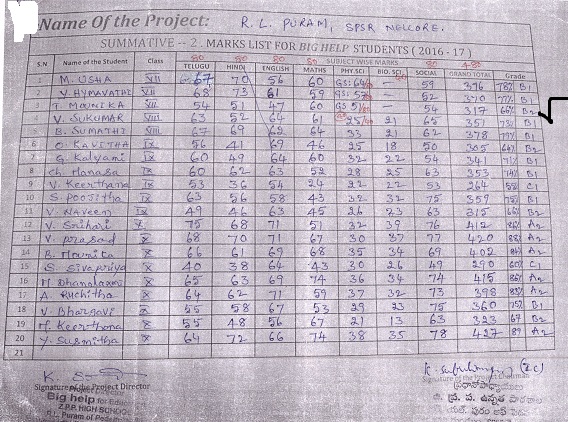 Name Of the Project: R. L. PURAM, SPSR NELLORE.
SUMMATIVE -- 2. MARKS LIST FOR BIG HELP STUDENTS ( 2016 - 17 )
S.N Name of the Student Class SUBJECT WISE MARKS
80 80 80 80 80 480
TELUGU HINDI ENGLISH MATHS PHY.SCI BIO. SCI SOCIAL GRAND TOTAL Grade
1 M. USHA VII 67 70 56 60 GS: 64 — 59 376 78% B1
2 Y. HYMAVATHI VII 68 73 61 59 GS: 57 — 52 370 77% B1
3 T. MOUNIKA VIII 54 51 47 60 GS 51 — 54 317 66% B2
4 V. SUKUMAR VIII 63 52 64 61 25/40 21 65 351 73% B1
5 B. SUMATHI VIII 67 69 62 64 33 21 62 378 79% B1
6 O. KAVETHA IX 56 41 69 46 25 18 50 305 64% B2
7 G. Kalyani IX 60 49 64 60 32 22 54 341 71% B1
8 Ch. Manasa IX 60 62 63 52 28 25 63 353 74% B1
9 V. Keerthana IX 53 36 54 24 22 22 53 264 55% C1
10 S. Poojitha IX 63 56 58 43 32 32 75 359 75% B1
11 V. NAVeen IX 49 46 63 45 26 23 63 315 66% B2
12 V. Srihari X 75 68 71 51 32 39 76 412 86% A2
13 V. Prasad X 68 70 71 67 30 37 77 420 88% A2
14 B. Mounica X 66 61 69 68 35 34 69 402 84% A2
15 S. Sivapriya X 40 38 64 43 30 26 49 290 60% C1
16 M Dhanalaxmi X 65 63 69 74 36 34 74 415 86% A2
17 A. Ruchitha X 64 62 71 59 37 32 73 398 83% A2
18 V. Bhargavi X 55 58 67 53 29 23 75 360 75% B1
19 M. Keerthana X 55 48 56 67 21 13 63 323 67 B2
20 Y. Susmitha X 64 72 66 74 38 35 78 427 89 A2
21
Signature of the Project Director
Big help for
Z.P.P. HIGH SCHOOL
Puram of
Signature of the
ప్రధానోపాధ్యాయులు
ఉన్నత పాఠశాల